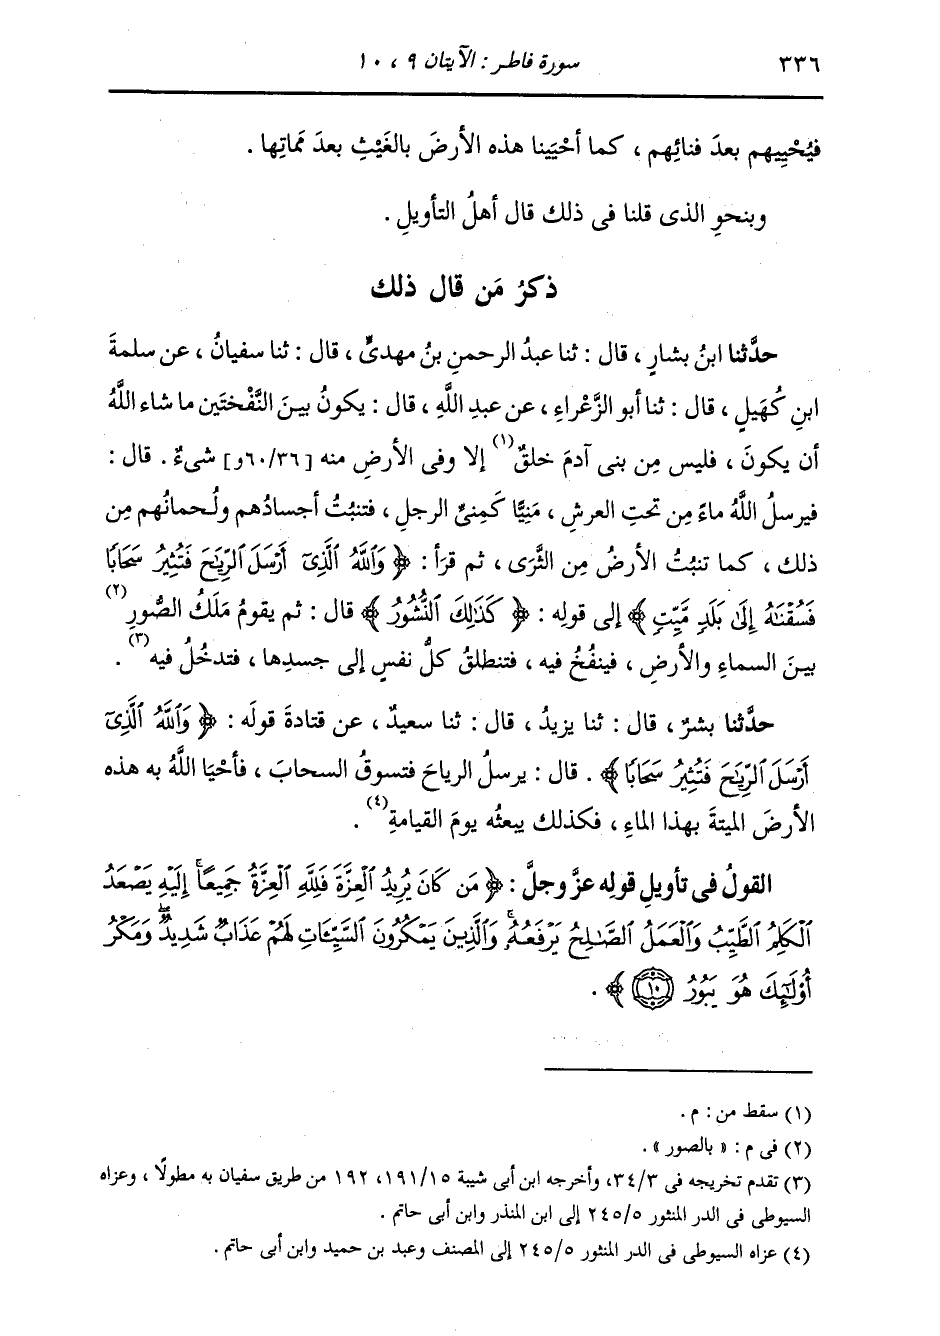 ٣٣٦ سورة فاطر : الآيتان ٩ ، ١٠
فيُحْيِيهم بعدَ فنائِهم ، كما أحْيَينا هذه الأرضَ بالغَيْثِ بعدَ مَماتِها .
وبنحوِ الذى قلنا فى ذلك قال أهلُ التأويلِ .
ذكرُ مَن قال ذلك
حدَّثنا ابنُ بشارٍ ، قال : ثنا عبدُ الرحمنِ بنُ مهدىٍّ ، قال : ثنا سفيانُ ، عن سلمةَ
ابنِ كُهَيلٍ ، قال : ثنا أبو الزَّعْراءِ ، عن عبدِ اللَّهِ ، قال : يكونُ بينَ النَّفْختَين ما شاء اللَّهُ
أن يكونَ ، فليس مِن بنى آدمَ خلقٌ(١) إلا وفى الأرضِ منه [٦٠/٣٦و] شىءٌ . قال :
فيرسلُ اللَّهُ ماءً مِن تحتِ العرشِ ، مَنِيًّا كَمِنىِّ الرجلِ ، فتنبُتُ أجسادُهم ولُحمانُهم مِن
ذلك ، كما تنبُتُ الأرضُ مِن الثَّرَى ، ثم قرَأ : ﴿ وَٱللَّهُ ٱلَّذِىٓ أَرْسَلَ ٱلرِّيَٰحَ فَتُثِيرُ سَحَابًا
فَسُقْنَٰهُ إِلَىٰ بَلَدٍ مَّيِّتٍ ﴾ إلى قولِه : ﴿ كَذَٰلِكَ ٱلنُّشُورُ ﴾ قال : ثم يقومُ مَلَكُ الصُّورِ(٢)
بينَ السماءِ والأرضِ ، فينفُخُ فيه ، فتنطلقُ كلُّ نفسٍ إلى جسدِها ، فتدخُلُ فيه(٣) .
حدَّثنا بشرٌ ، قال : ثنا يزيدُ ، قال : ثنا سعيدٌ ، عن قتادةَ قولَه : ﴿ وَٱللَّهُ ٱلَّذِىٓ
أَرْسَلَ ٱلرِّيَٰحَ فَتُثِيرُ سَحَابًا ﴾ . قال : يرسلُ الرياحَ فتسوقُ السحابَ ، فأحْيَا اللَّهُ به هذه
الأرضَ الميتةَ بهذا الماءِ ، فكذلك يبعثُه يومَ القيامةِ(٤) .
القولُ فى تأويلِ قولِه عزَّ وجلَّ : ﴿ مَن كَانَ يُرِيدُ ٱلْعِزَّةَ فَلِلَّهِ ٱلْعِزَّةُ جَمِيعًاۚ إِلَيْهِ يَصْعَدُ
ٱلْكَلِمُ ٱلطَّيِّبُ وَٱلْعَمَلُ ٱلصَّٰلِحُ يَرْفَعُهُۥۚ وَٱلَّذِينَ يَمْكُرُونَ ٱلسَّيِّـَٔاتِ لَهُمْ عَذَابٌ شَدِيدٌۖ وَمَكْرُ
أُو۟لَٰٓئِكَ هُوَ يَبُورُ ۝١٠ ﴾ .
(١) سقط من : م .
(٢) فى م : « بالصور » .
(٣) تقدم تخريجه فى ٣٤/٣، وأخرجه ابن أبى شيبة ١٩١/١٥، ١٩٢ من طريق سفيان به مطولًا ، وعزاه
السيوطى فى الدر المنثور ٢٤٥/٥ إلى ابن المنذر وابن أبى حاتم .
(٤) عزاه السيوطى فى الدر المنثور ٢٤٥/٥ إلى المصنف وعبد بن حميد وابن أبى حاتم .